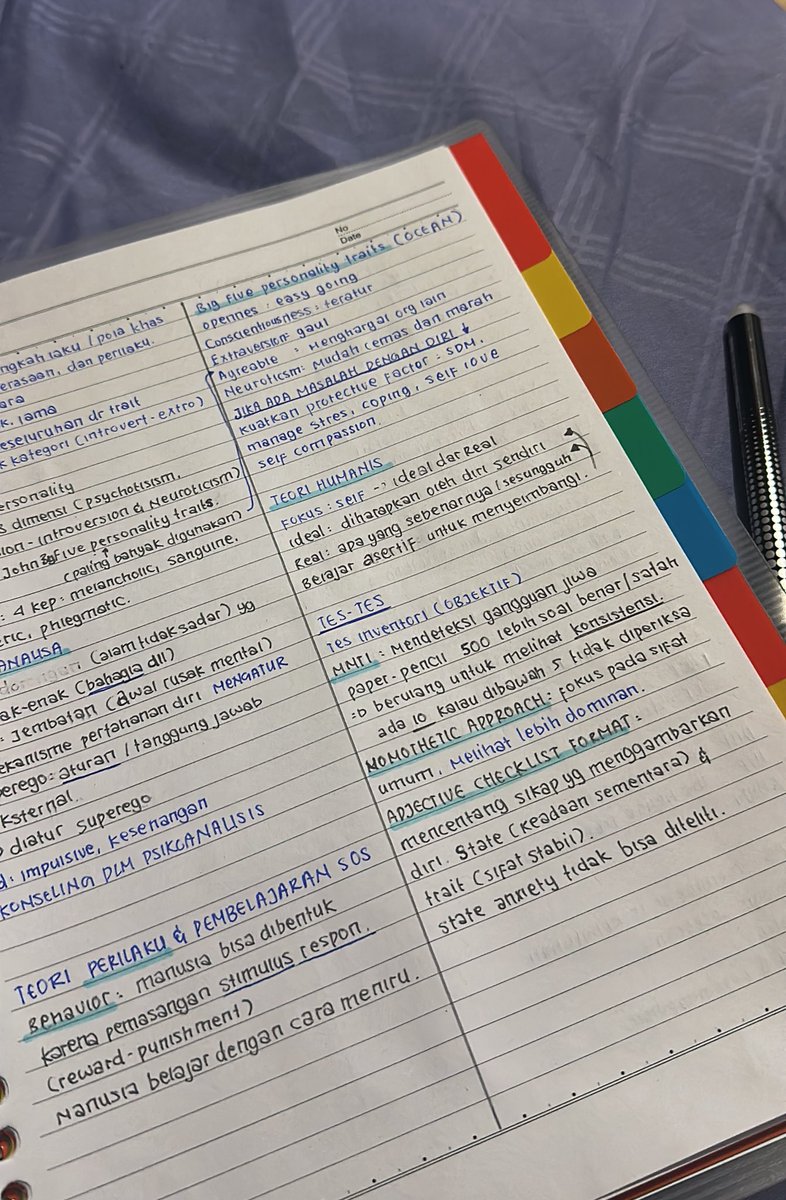 No
Date
ngkah laku / pola khas
erasaan, dan perilaku.
ara
k, lama
eseluruhan dr trait
k kategori (introvert-extro)
ersonality
3 dimensi (psychotisism,
sion - introversion & Neuroticism)
John Big five personality traits.
(paling banyak digunakan)
: 4 kep: melancholic, sanguine,
eric, phlegmatic.
ANALISA
(alam tidak sadar) yg
ak-enak (bahagia dll)
: Jembatan (awal rusak mental)
ekanisme pertahanan diri MENGATUR
perego: aturan / tanggung jawab
ksternal
diatur superego
d: impulsive, kesenangan
KONSELING DLM PSIKOANALISIS
TEORI PERILAKU & PEMBELAJARAN SOS
Behavior: manusia bisa dibentuk
karena pemasangan stimulus respon.
(reward-punishment)
Manusia belajar dengan cara meniru.
Big Five personality traits (OCEAN)
opennes : easy going
Conscientiousness : teratur
Extraversion: gaul
Agreable : Menghargai org lain
Neuroticsm: Mudah cemas dan marah
JIKA ADA MASALAH DENGAN DIRI ↓
kuatkan protective factor : SDM,
manage stres, coping, self love
self compassion.
TEORI HUMANIS
FOKUS : SELF -> Ideal dar Real
Ideal : diharapkan oleh diri sendiri
Real : apa yang sebenarnya / sesungguh
Belajar asertif untuk menyeimbangi.
TES-TES
Tes Inventori (OBJEKTIF)
MNTI : Mendeteksi gangguan jiwa
paper-pencil 500 lebih soal benar/salah
berulang untuk melihat konsistensi.
ada 10 kalau dibawah 5 tidak diperiksa
NOMOTHETIC APPROACH: Fokus pada sifat
umum, Melihat lebih dominan.
ADJECTIVE CHECKLIST FORMAT :
mencentang sikap yg menggambarkan
diri. State (keadaan sementara) &
trait (sifat stabil).
state anxiety tidak bisa diteliti.